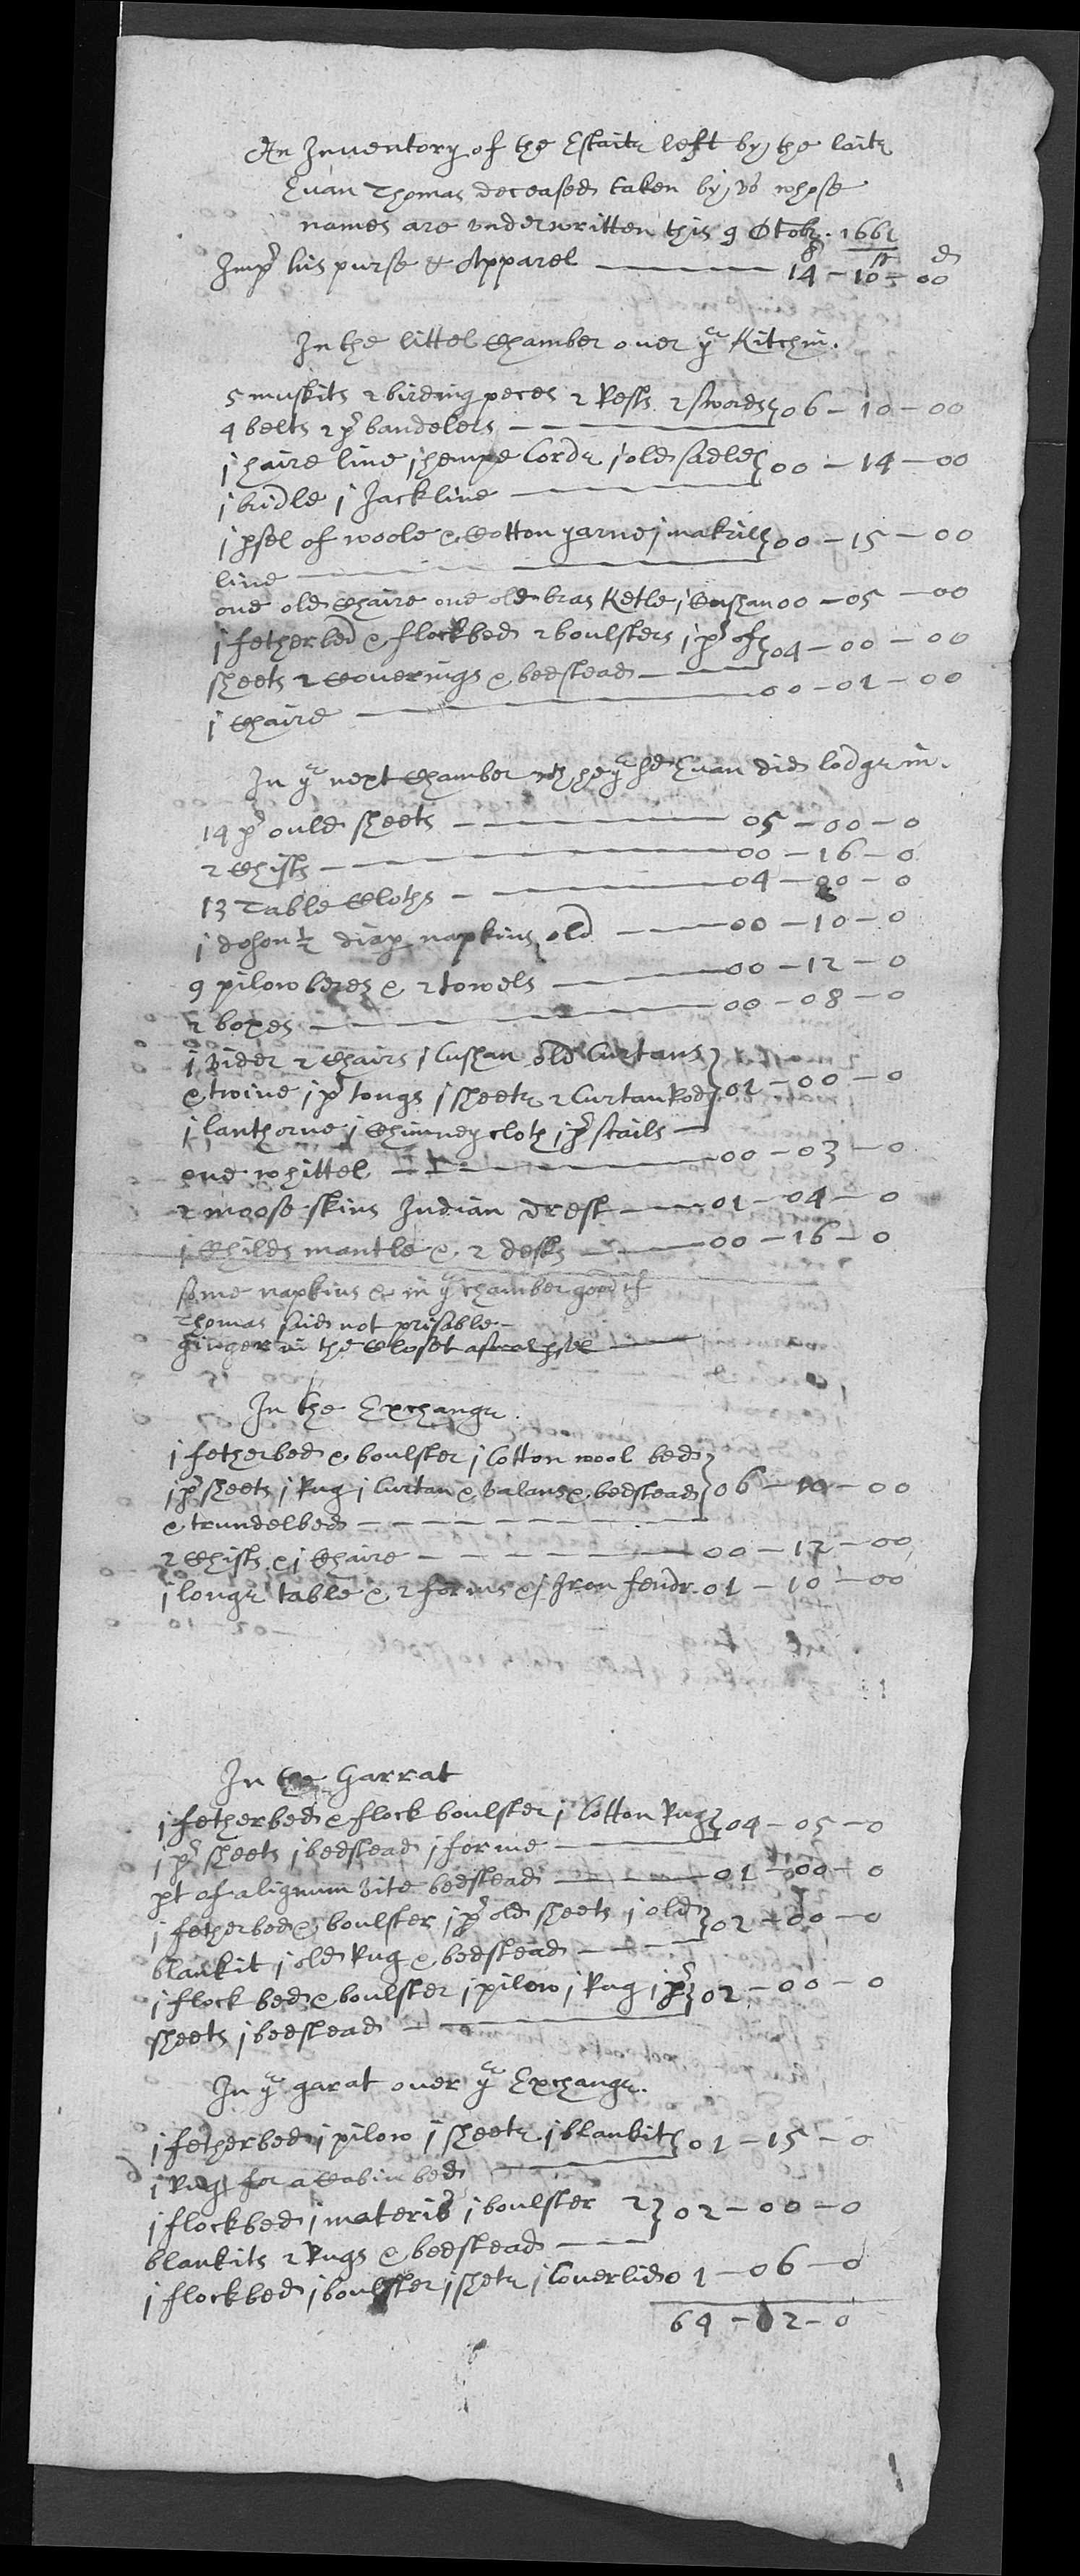 An Inventory of the Estate left by the laite
Evan Thomas deceased taken by vs whose
names are vnderwritten this 9 Octobr. 1661
£ s d
Imp^r his purse & Apparel — 14 – 10 – 00
In the littel Chamber ouer y^e Kitchin.
5 muskits 2 birding peces 2 Rests 2 swords } 06 – 10 – 00
4 belts 2 p^r bandelers —
j haire line j hempe Corde j old sadle } 00 – 14 – 00
j bridle j Jack line —
j psel of woole & Cotton yarne j makrill } 00 – 15 – 00
line —
one old Chaire one old bras Ketle j Cushan 00 – 05 – 00
j fetherbed & flockbed 2 boulsters j p^r of } 04 – 00 – 00
sheets 2 Couerings & bedstead —
j Chaire — 00 – 01 – 00
In y^e next Chamber y^e s^d Evan did lodge in.
14 p^r ould sheets — 05 – 00 – 0
2 Chists — 00 – 16 – 0
13 Table Cloths — 04 – 00 – 0
j dosen ½ diap napkins old — 00 – 10 – 0
9 pilow beres & 2 towels — 00 – 12 – 0
2 boxes — 00 – 08 – 0
j 2 Chairs j Cushan old Curtans }
& twine j p^r tongs j sheete 2 Curtan Rods } 01 – 00 – 0
j lanthorne j Chimney cloth j p^r scails —
one whittel — 00 – 03 – 0
2 moose skins Indian drest — 01 – 04 – 0
j Childs mantle & 2 desks — 00 – 16 – 0
some napkins & in y^e chamber
Thomas said not prisable –
ginger in the Closet —
In the Exchange.
j fetherbed & boulster j Cotton wool bed }
j p^r sheets j Rug j Curtan & valans & bedstead } 06 – 10 – 00
& trundelbed —
2 Chists & j Chaire — 00 – 12 – 00
j longe table & 2 forms & j Iron fendr. 01 – 10 – 00
In the Garrat
j fetherbed & flock boulster j Cotton Rug } 04 – 05 – 0
j p^r sheets j bedstead j forme —
pt of a lignum vite bedstead — 01 – 00 – 0
j fetherbed & boulster j p^r old sheets j old } 02 – 00 – 0
blankit j old Rug & bedstead —
j flock bed & boulster j pilow j Rug j p^r } 02 – 00 – 0
sheets j bedstead —
In y^e garat ouer y^e Exchange.
j fetherbed j pilow j sheete j blankit } 01 – 15 – 0
j Rug for a Cabin bed —
j flockbed j materis j boulster 2 } 02 – 00 – 0
blankits 2 Rugs & bedstead —
j flockbed j boulster j shete j Couerlid 01 – 06 – 0
64 – 02 – 0